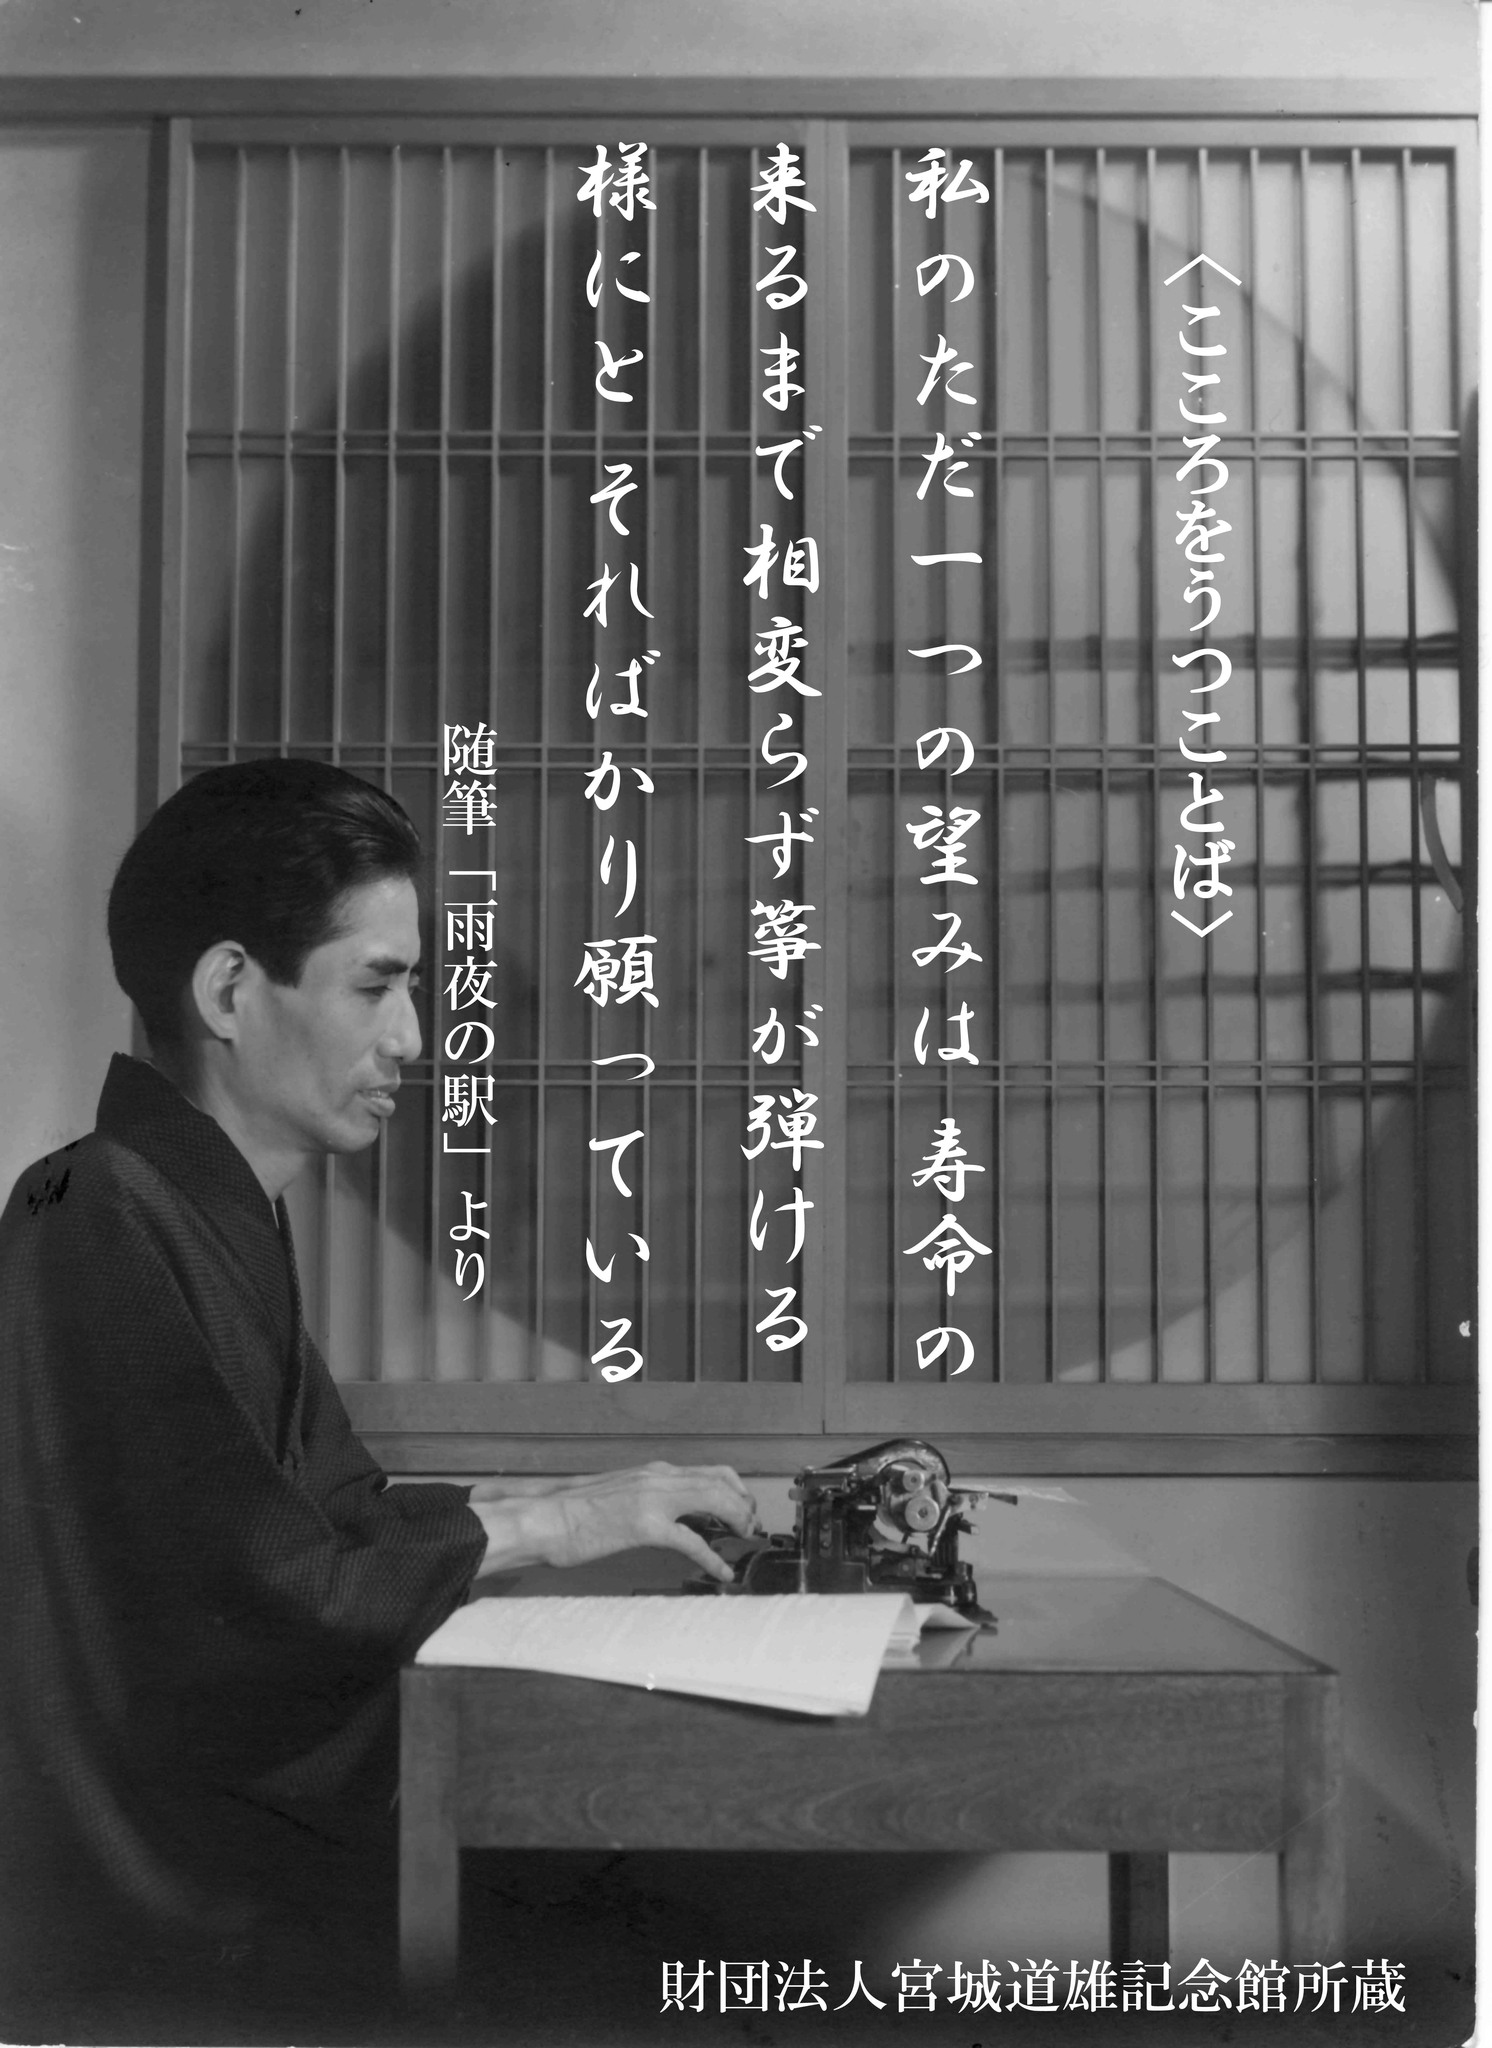 〈こころをうつことば〉
私のただ一つの望みは 寿命の
来るまで相変らず箏が弾ける
様にと そればかり願っている
随筆「雨夜の駅」より
財団法人宮城道雄記念館所蔵